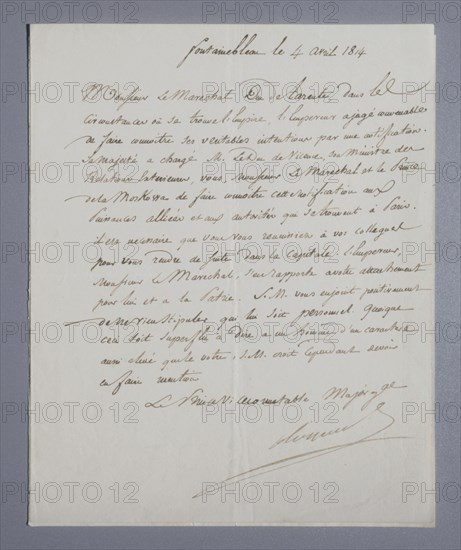 fontainebleau le 4 avril 1814
Monsieur Le Marechal Duc de Tarente, dans les
circonstances où se trouve l'Empire, l'Empereur a jugé convenable
de faire connoitre ses veritables intentions par une notification.
Sa Majesté a chargé M. Le Duc de Vicence, son Ministre des
Relations Exterieures, vous, Monsieur Le Marechal et le Prince
de la Moskowa de faire connoitre cette notification aux
Puissances alliées et aux autorités qui se trouvent à Paris.
Il est necessaire que vous vous reunissiez à vos collegues
pour vous rendre de suite dans la Capitale. L'Empereur,
Monsieur le Marechal, s'en rapporte à votre attachement
pour lui et a la Patrie. S. M. vous enjoint positivement
de ne rien stipuler qui lui soit personnel. Quoique
ceci soit superflu à dire à un homme d'un caractère
aussi elevé que le votre, S. M. croit cependant devoir
en faire mention
Le Prince Vice connetable Major gal
PHOTO 12